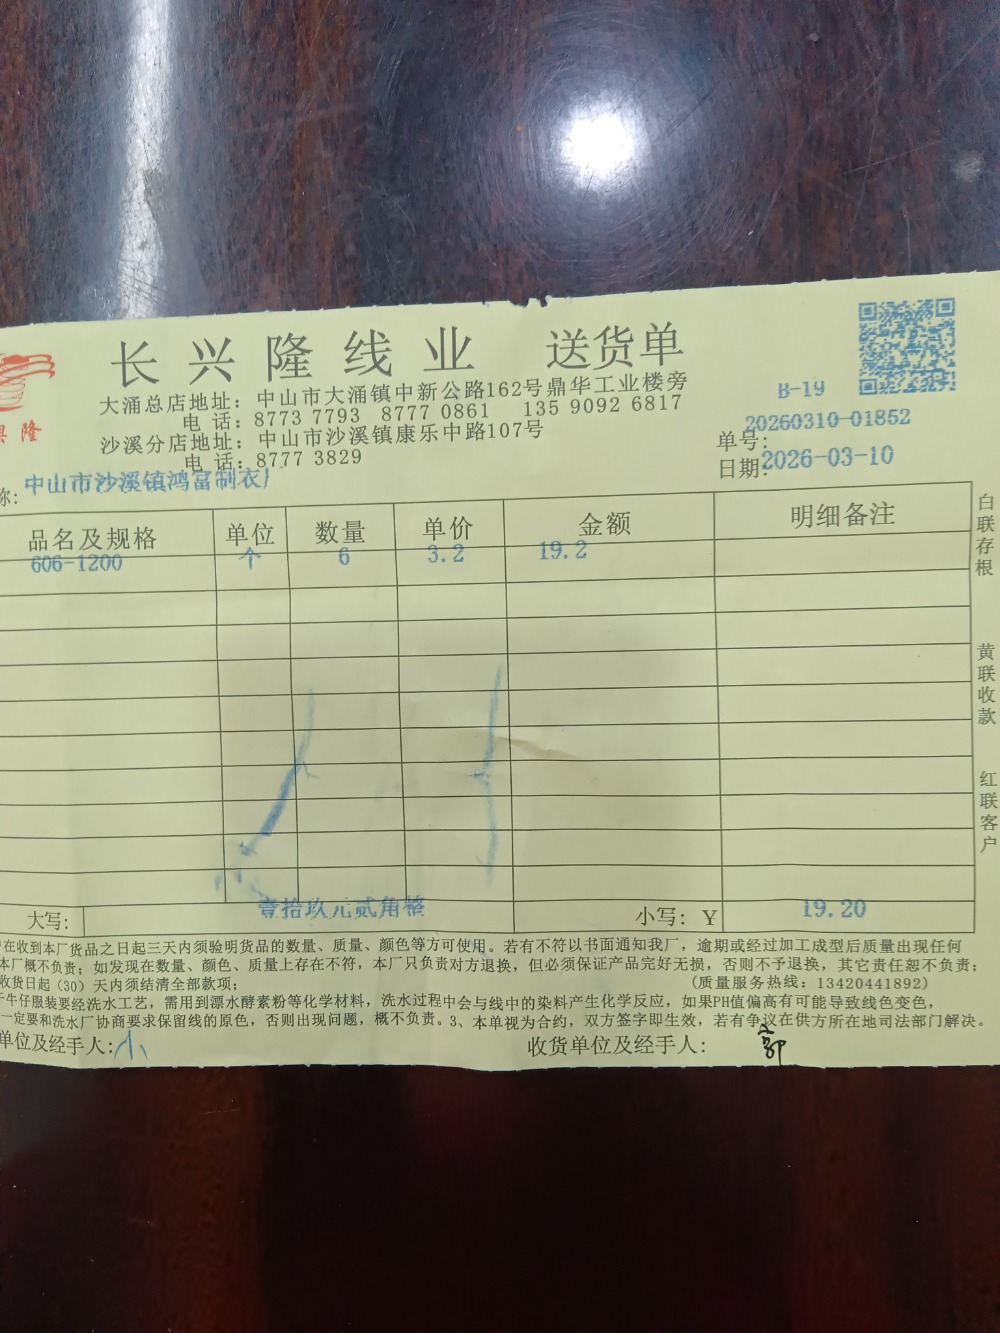 长兴隆线业 送货单
隆
大涌总店地址：中山市大涌镇中新公路162号鼎华工业楼旁
电话：8773 7793 8777 0861 135 9092 6817
沙溪分店地址：中山市沙溪镇康乐中路107号
电话：8777 3829
B-19
单号：20260310-01852
日期：2026-03-10
称：中山市沙溪镇鸿富制衣厂
品名及规格 单位 数量 单价 金额 明细备注
606-1200 个 6 3.2 19.2
大写：壹拾玖元贰角整 小写：Y 19.20
在收到本厂货品之日起三天内须验明货品的数量、质量、颜色等方可使用。若有不符以书面通知我厂，逾期或经过加工成型后质量出现任何
本厂概不负责；如发现在数量、颜色、质量上存在不符，本厂只负责对方退换，但必须保证产品完好无损，否则不予退换，其它责任恕不负责；
收货日起（30）天内须结清全部款项； （质量服务热线：13420441892）
牛仔服装要经洗水工艺，需用到漂水酵素粉等化学材料，洗水过程中会与线中的染料产生化学反应，如果PH值偏高有可能导致线色变色，
一定要和洗水厂协商要求保留线的原色，否则出现问题，概不负责。3、本单视为合约，双方签字即生效，若有争议在供方所在地司法部门解决。
单位及经手人：小 收货单位及经手人：郭
白联存根
黄联收款
红联客户